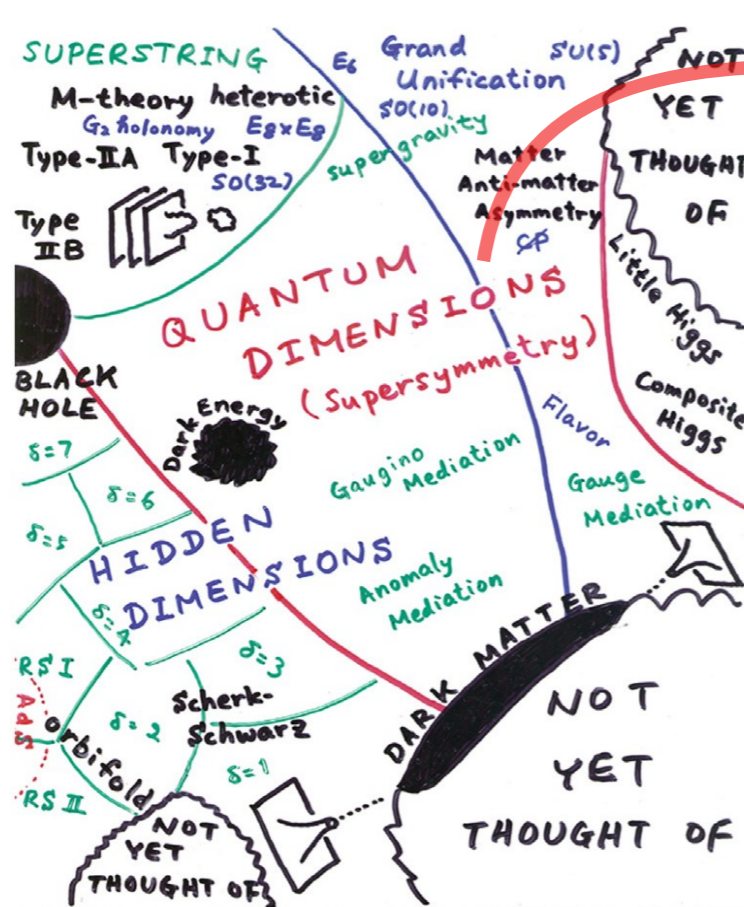 SUPERSTRING
M-theory heterotic
G₂ holonomy E₈×E₈
Type-IIA Type-I
SO(32)
Type
IIB
E₆
Grand
Unification
SU(5)
SO(10)
supergravity
Matter
Anti-matter
Asymmetry
CP
NOT
YET
THOUGHT
OF
Little Higgs
Composite
Higgs
QUANTUM
DIMENSIONS
(Supersymmetry)
BLACK
HOLE
Dark Energy
Flavor
Gaugino
Mediation
Gauge
Mediation
δ=7
δ=6
δ=5
HIDDEN
DIMENSIONS
Anomaly
Mediation
δ=4
δ=3
DARK MATTER
RS I
AdS
orbifold
δ=2
Scherk-
Schwarz
RS II
δ=1
NOT
YET
THOUGHT OF
NOT
YET
THOUGHT OF